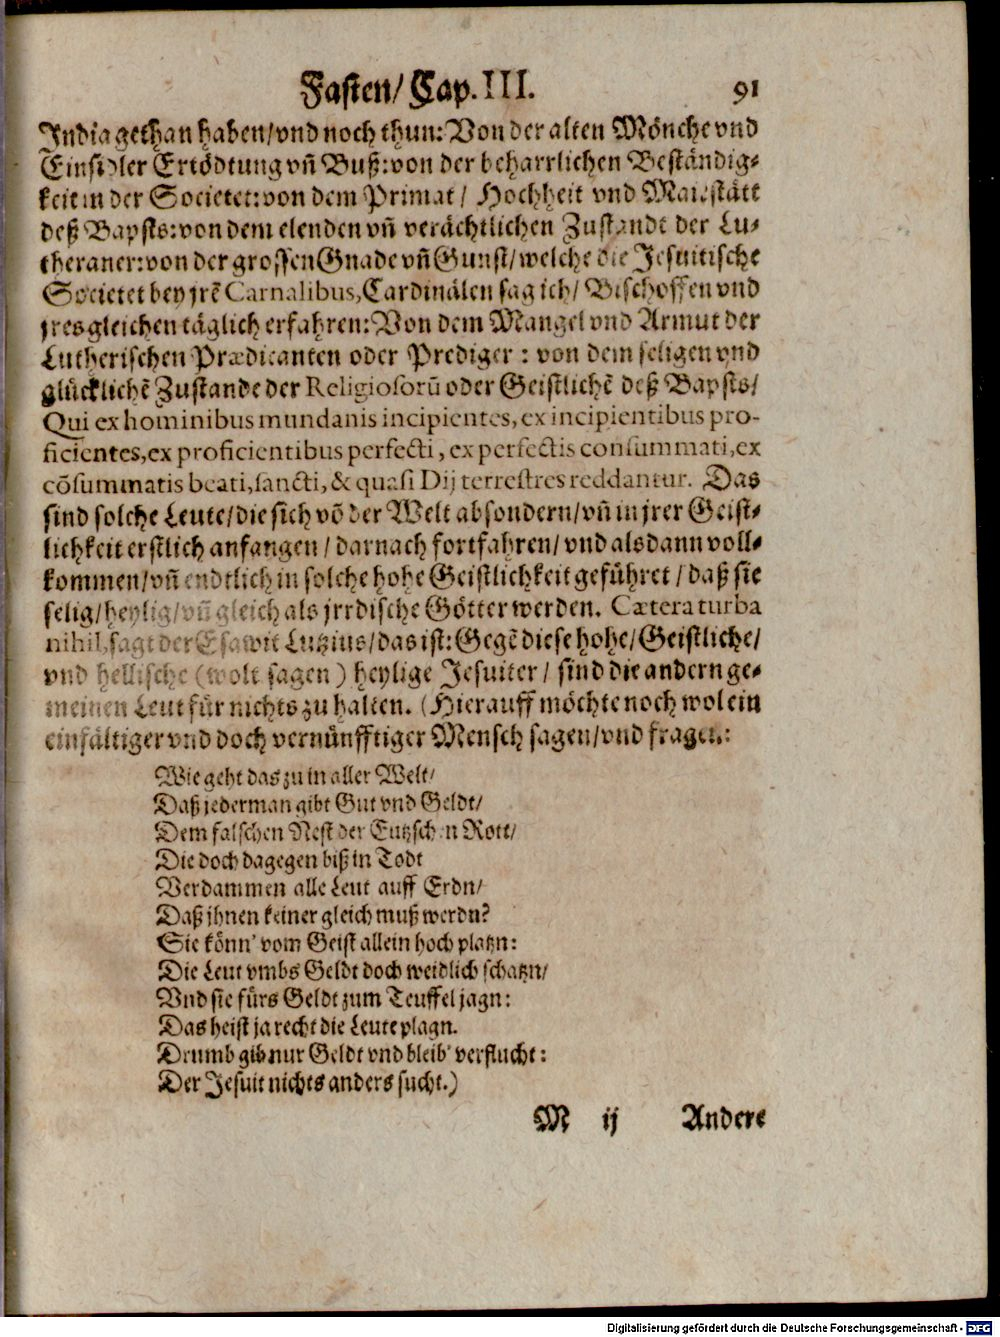 Fasten/ Cap. III. 91
India gethan haben/vnd noch thun: Von der alten Mönche vnd
Einsidler Ertödtung vñ Buß: von der beharrlichen Beständig-
keit in der Societet: von dem Primat/ Hochheit vnd Maiestätt
deß Bapsts: von dem elenden vñ verächtlichen Zustandt der Lu-
theraner: von der grossen Gnade vñ Gunst/welche die Jesuitische
Societet bey jrẽ Carnalibus, Cardinälen sag ich/ Bischoffen vnd
jres gleichen täglich erfahren: Von dem Mangel vnd Armut der
Lutherischen Prædicanten oder Prediger: von dem seligen vnd
glücklichẽ Zustande der Religiosorũ oder Geistlichẽ deß Bapsts/
Qui ex hominibus mundanis incipientes, ex incipientibus pro-
ficientes, ex proficientibus perfecti, ex perfectis consummati, ex
cõsummatis beati, sancti, & quasi Dij terrestres reddantur. Das
sind solche Leute/die sich võ der Welt absondern/vñ in jrer Geist-
lichkeit erstlich anfangen/ darnach fortfahren/ vnd alsdann voll-
kommen/vñ endtlich in solche hohe Geistlichkeit geführet/ daß sie
selig/heylig/vñ gleich als jrrdische Götter werden. Cætera turba
nihil, sagt der Esawit Lutzius/das ist: Gegẽ diese hohe/Geistliche/
vnd hellische (wolt sagen) heylige Jesuiter/ sind die andern ge-
meinen Leut für nichts zu halten. (Hierauff möchte noch wol ein
einfältiger vnd doch vernünfftiger Mensch sagen/vnd fragen:
Wie geht das zu in aller Welt/
Daß jederman gibt Gut vnd Geldt/
Dem falschen Nest der Eutzschen Rott/
Die doch dagegen biß in Todt
Verdammen alle Leut auff Erdn/
Daß jhnen keiner gleich muß werdn?
Sie könn' vom Geist allein hoch platzn:
Die Leut vmbs Geldt doch weidlich schatzn/
Vnd sie fürs Geldt zum Teuffel jagn:
Das heist ja recht die Leute plagn.
Drumb gib nur Geldt vnd bleib' verflucht:
Der Jesuit nichts anders sucht.)
M ij Andere
Digitalisierung gefördert durch die Deutsche Forschungsgemeinschaft - DFG